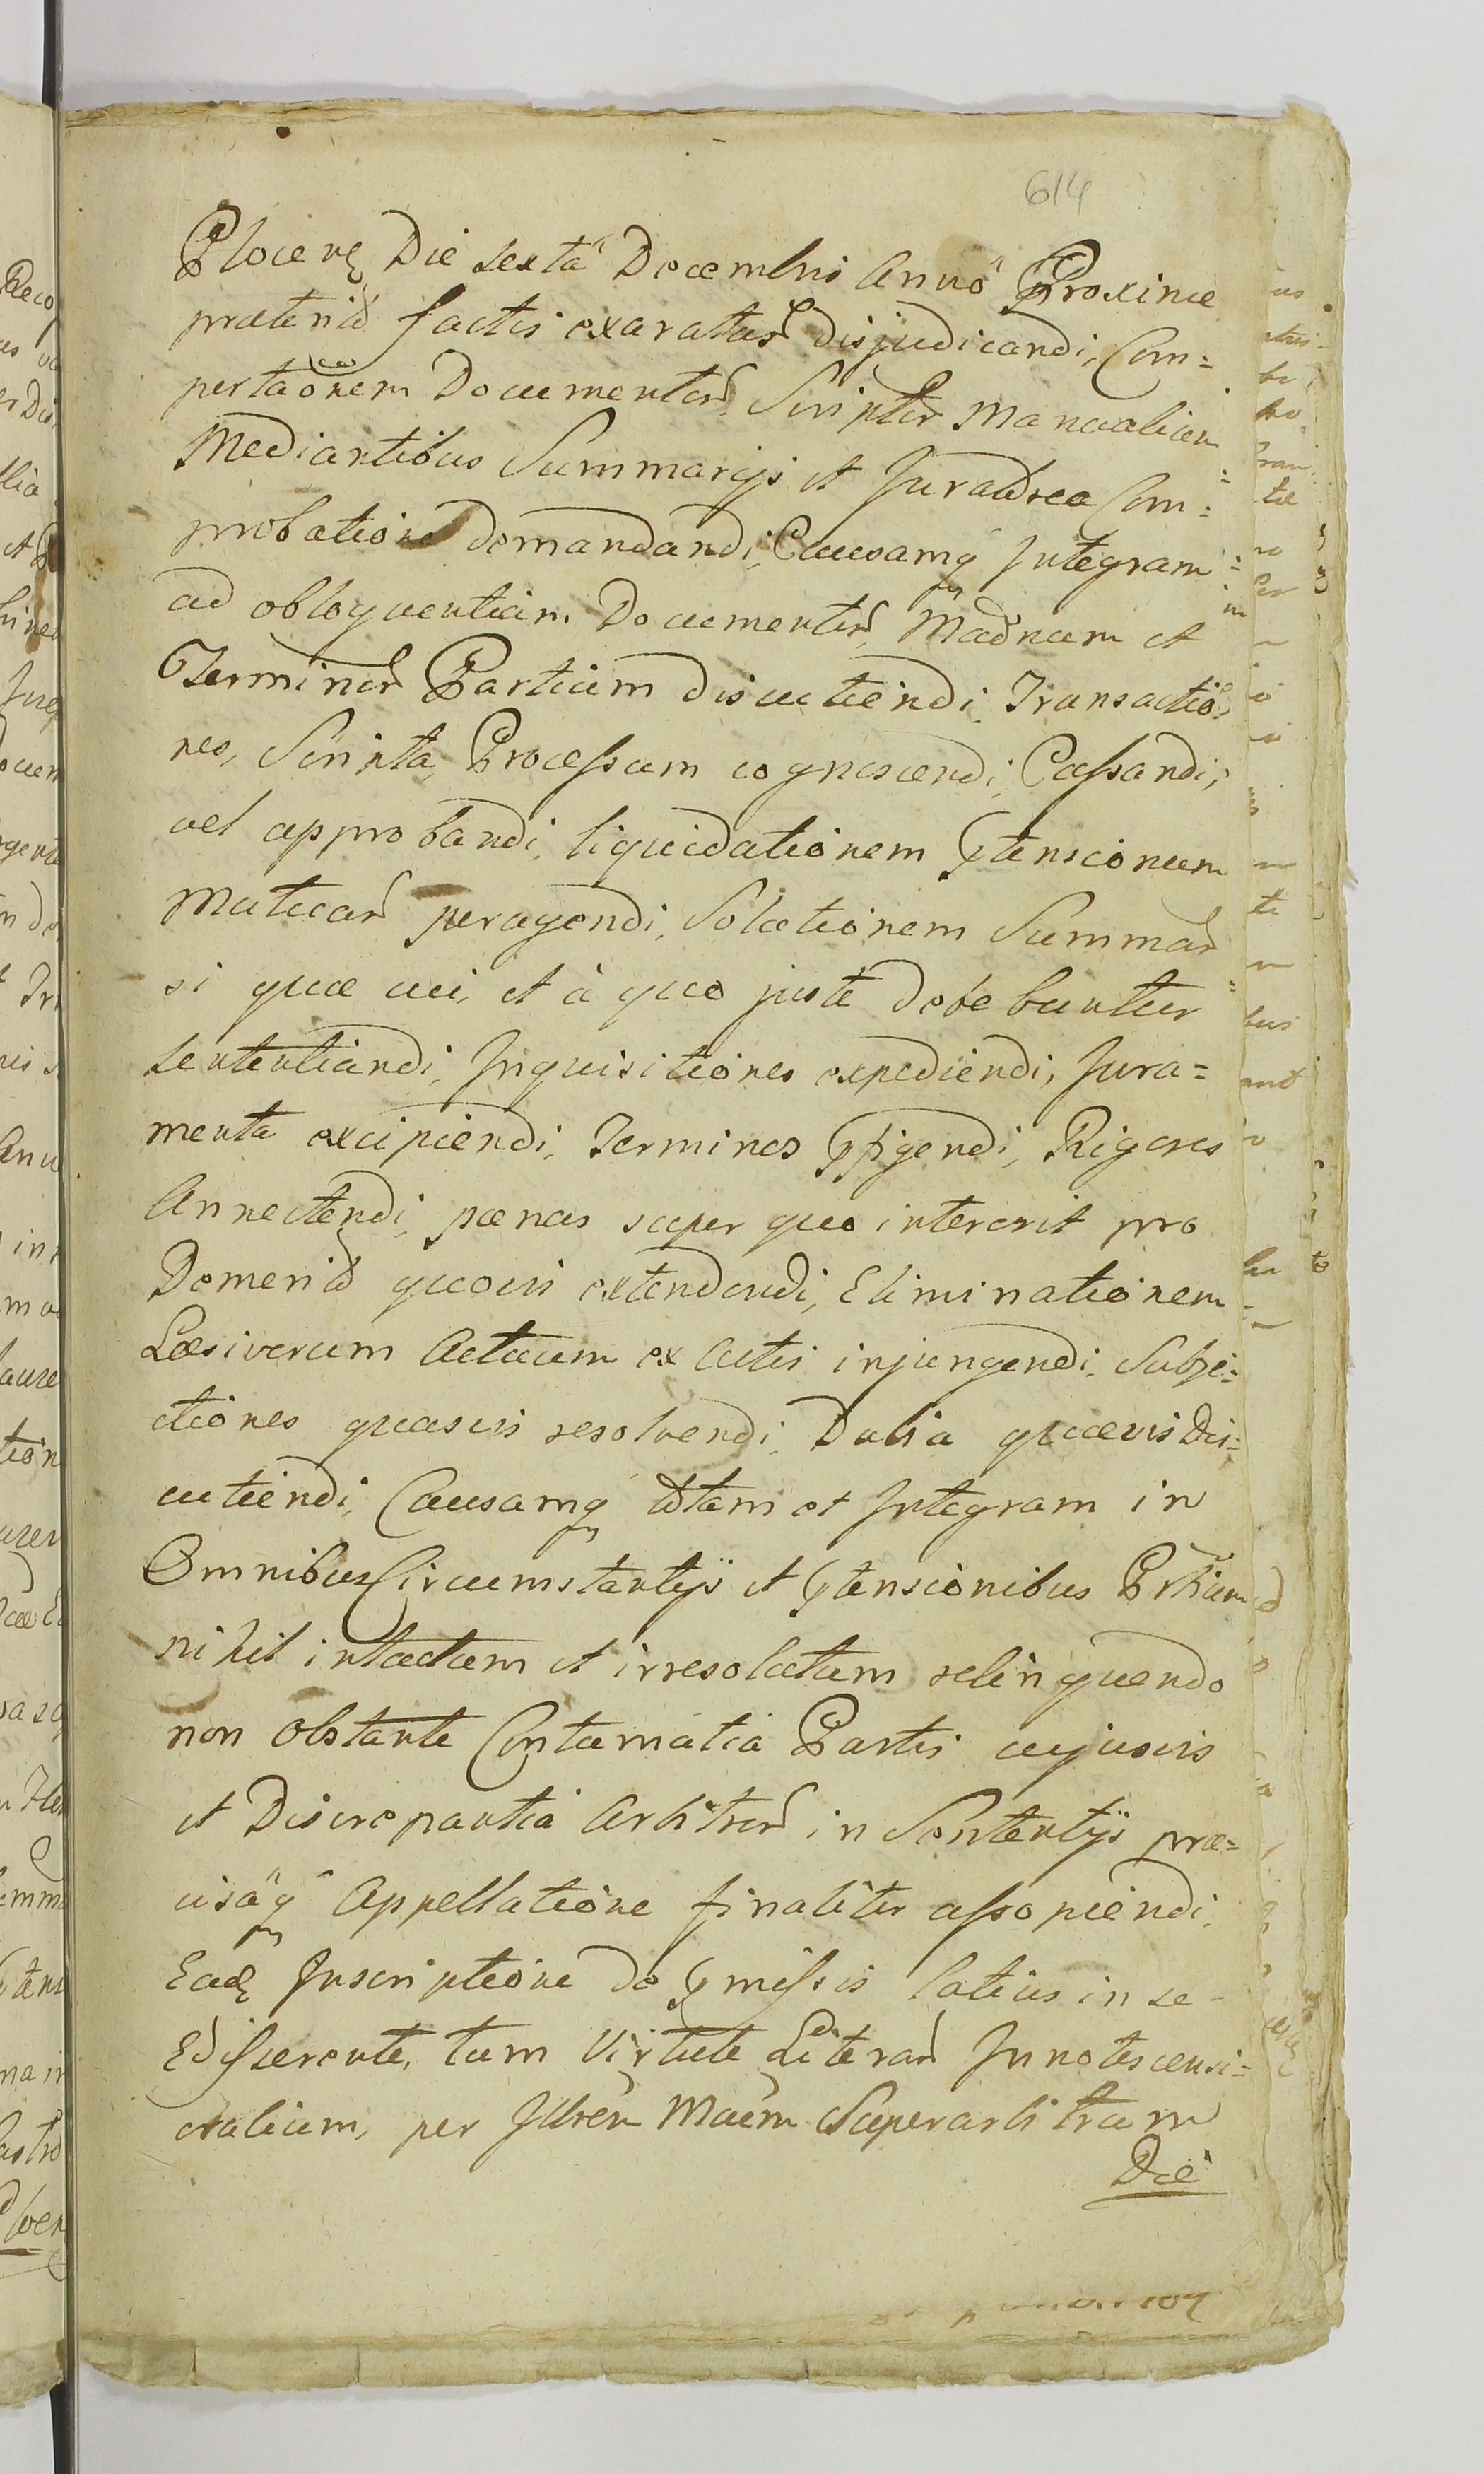 614
Plocen Die sextâ Decembris Annô Proxime
præterito factis exaratas disjudicandi, Com=
portaõnem Documentor Scriptor Manualium
Mediantibus Summarijs et Juratorea Com=
probatione demandandi, Causamq Integram
ad obloquentiam Documentor, Madnum et
Terminor Partium discutiendi, Transactio=
nes, Scripta, Processum cognoscendi, Cassandi,
vel approbandi, liquidationem Ptensionum
Mutuar peragendi, Solutionem Summar
si quæ cui, et à quo juste debebuntur
sententiandi, Inquisitiones expediendi, Jura=
menta excipiendi, Terminos Pfigendi, Rigores
Annectendi, pænas super quo intererit pro
Demerito quovis extendendi, Eliminationem
Læsivorum Actuum ex Actis injungendi, Subje=
ctiones quasvis resolvendi, Dubia quævis Dis=
cutiendi, Causamq totam et Integram in
Omnibus Circumstantijs et Ptensionibus Prtium
nihil intactum et irresolutum relinquendo
non Obstante Contumatia Partis cujusvis
et Discrepantia Arbitror in Sententijs præ=
cisâq Appellatione finaliter assopiendi,
Eade Inscriptione de Pmissis latius in se
Edisserente, tum Virtute Literar Innotescensi=
onalium, per Illrem Maem Superarbitrum
Die